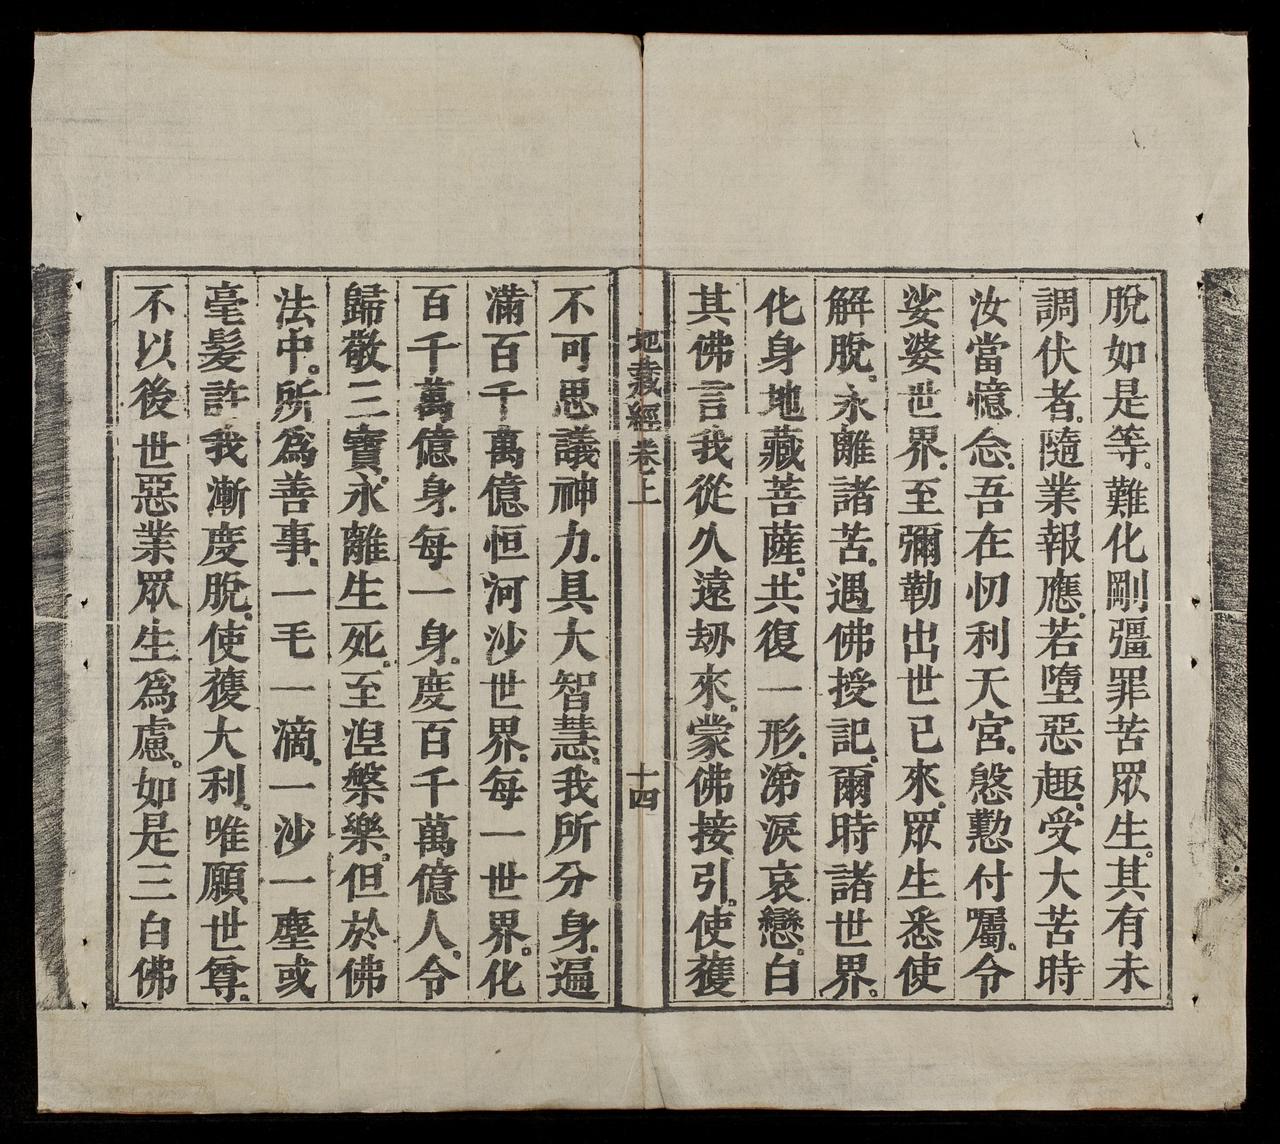 脫如是等。難化剛彊罪苦眾生。其有未
調伏者。隨業報應。若墮惡趣。受大苦時
汝當憶念。吾在忉利天宮。慇懃付囑。令
娑婆世界。至彌勒出世已來。眾生悉使
解脫。永離諸苦。遇佛授記。爾時諸世界。
化身地藏菩薩。共復一形。涕淚哀戀。白
其佛言我從久遠劫來。蒙佛接引。使獲
地藏經卷上
十四
不可思議神力。具大智慧。我所分身。遍
滿百千萬億恒河沙世界。每一世界。化
百千萬億身。每一身。度百千萬億人。令
歸敬三寶。永離生死。至涅槃樂。但於佛
法中。所為善事。一毛一滴。一沙一塵或
毫髮許我漸度脫。使獲大利。唯願世尊。
不以後世惡業眾生為慮。如是三白佛